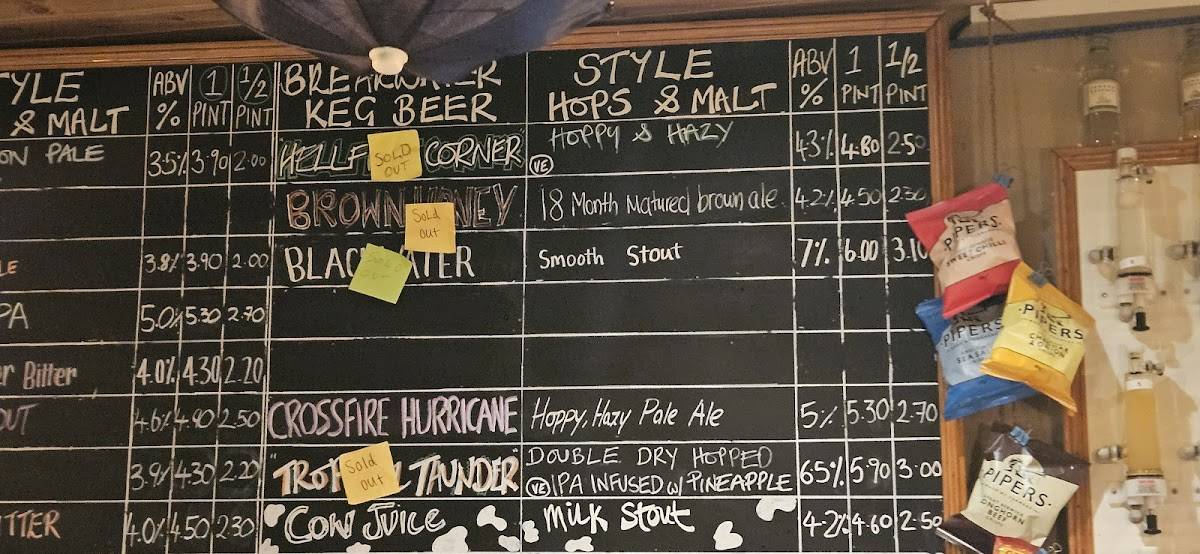 YLE
& MALT
ABV
%
1
PINT
1/2
PINT
BREAKWATER
KEG BEER
STYLE
HOPS & MALT
ABV
%
1
PINT
1/2
PINT
ON PALE 3.5% 3.90 2.00
HELLF SOLD OUT CORNER VE HOPPY & HAZY 4.3% 4.80 2.50
BROWN HONEY Sold out 18 Month Matured brown ale 4.2% 4.50 2.30
LE 3.8% 3.90 2.00
BLAC ATER Smooth Stout 7% 6.00 3.10
PA 5.0% 5.30 2.70
er Bitter 4.0% 4.30 2.20
OUT 4.6% 4.90 2.50
CROSSFIRE HURRICANE Hoppy, Hazy Pale Ale 5% 5.30 2.70
3.9% 4.30 2.20
"TRO Sold out L TAUNDER" DOUBLE DRY HOPPED
VE IPA INFUSED w/ PINEAPPLE 6.5% 5.90 3.00
ITTER 4.0% 4.50 2.30
COW JUICE Milk Stout 4.2% 4.60 2.50
PIPERS
SWEET CHILLI
PIPERS
SEA SA
PIPERS
CHEDDAR
& ONION
PIPERS
LONGHORN
BEEF